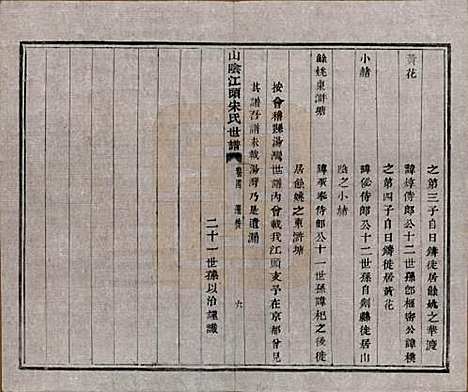 之第三子自日鑄徙居餘姚之華渡
黃花
諱焞侍郎公十二世孫郎樞密公諱橞
之第四子自日鑄徙居黃花
小赭
諱俊侍郎公十二世孫自剡縣徙居山
陰之小赭
餘姚東滸塘
諱承奉侍郎公十二世孫諱杞之後徙
居餘姚之東滸塘
按會稽縣湯灣世譜內曾載我江頭支子在京都曾見
其譜吾譜未載湯灣乃是遺漏
二十一世孫以治謹識
山陰江頭宋氏世譜
卷四 遷徙
六